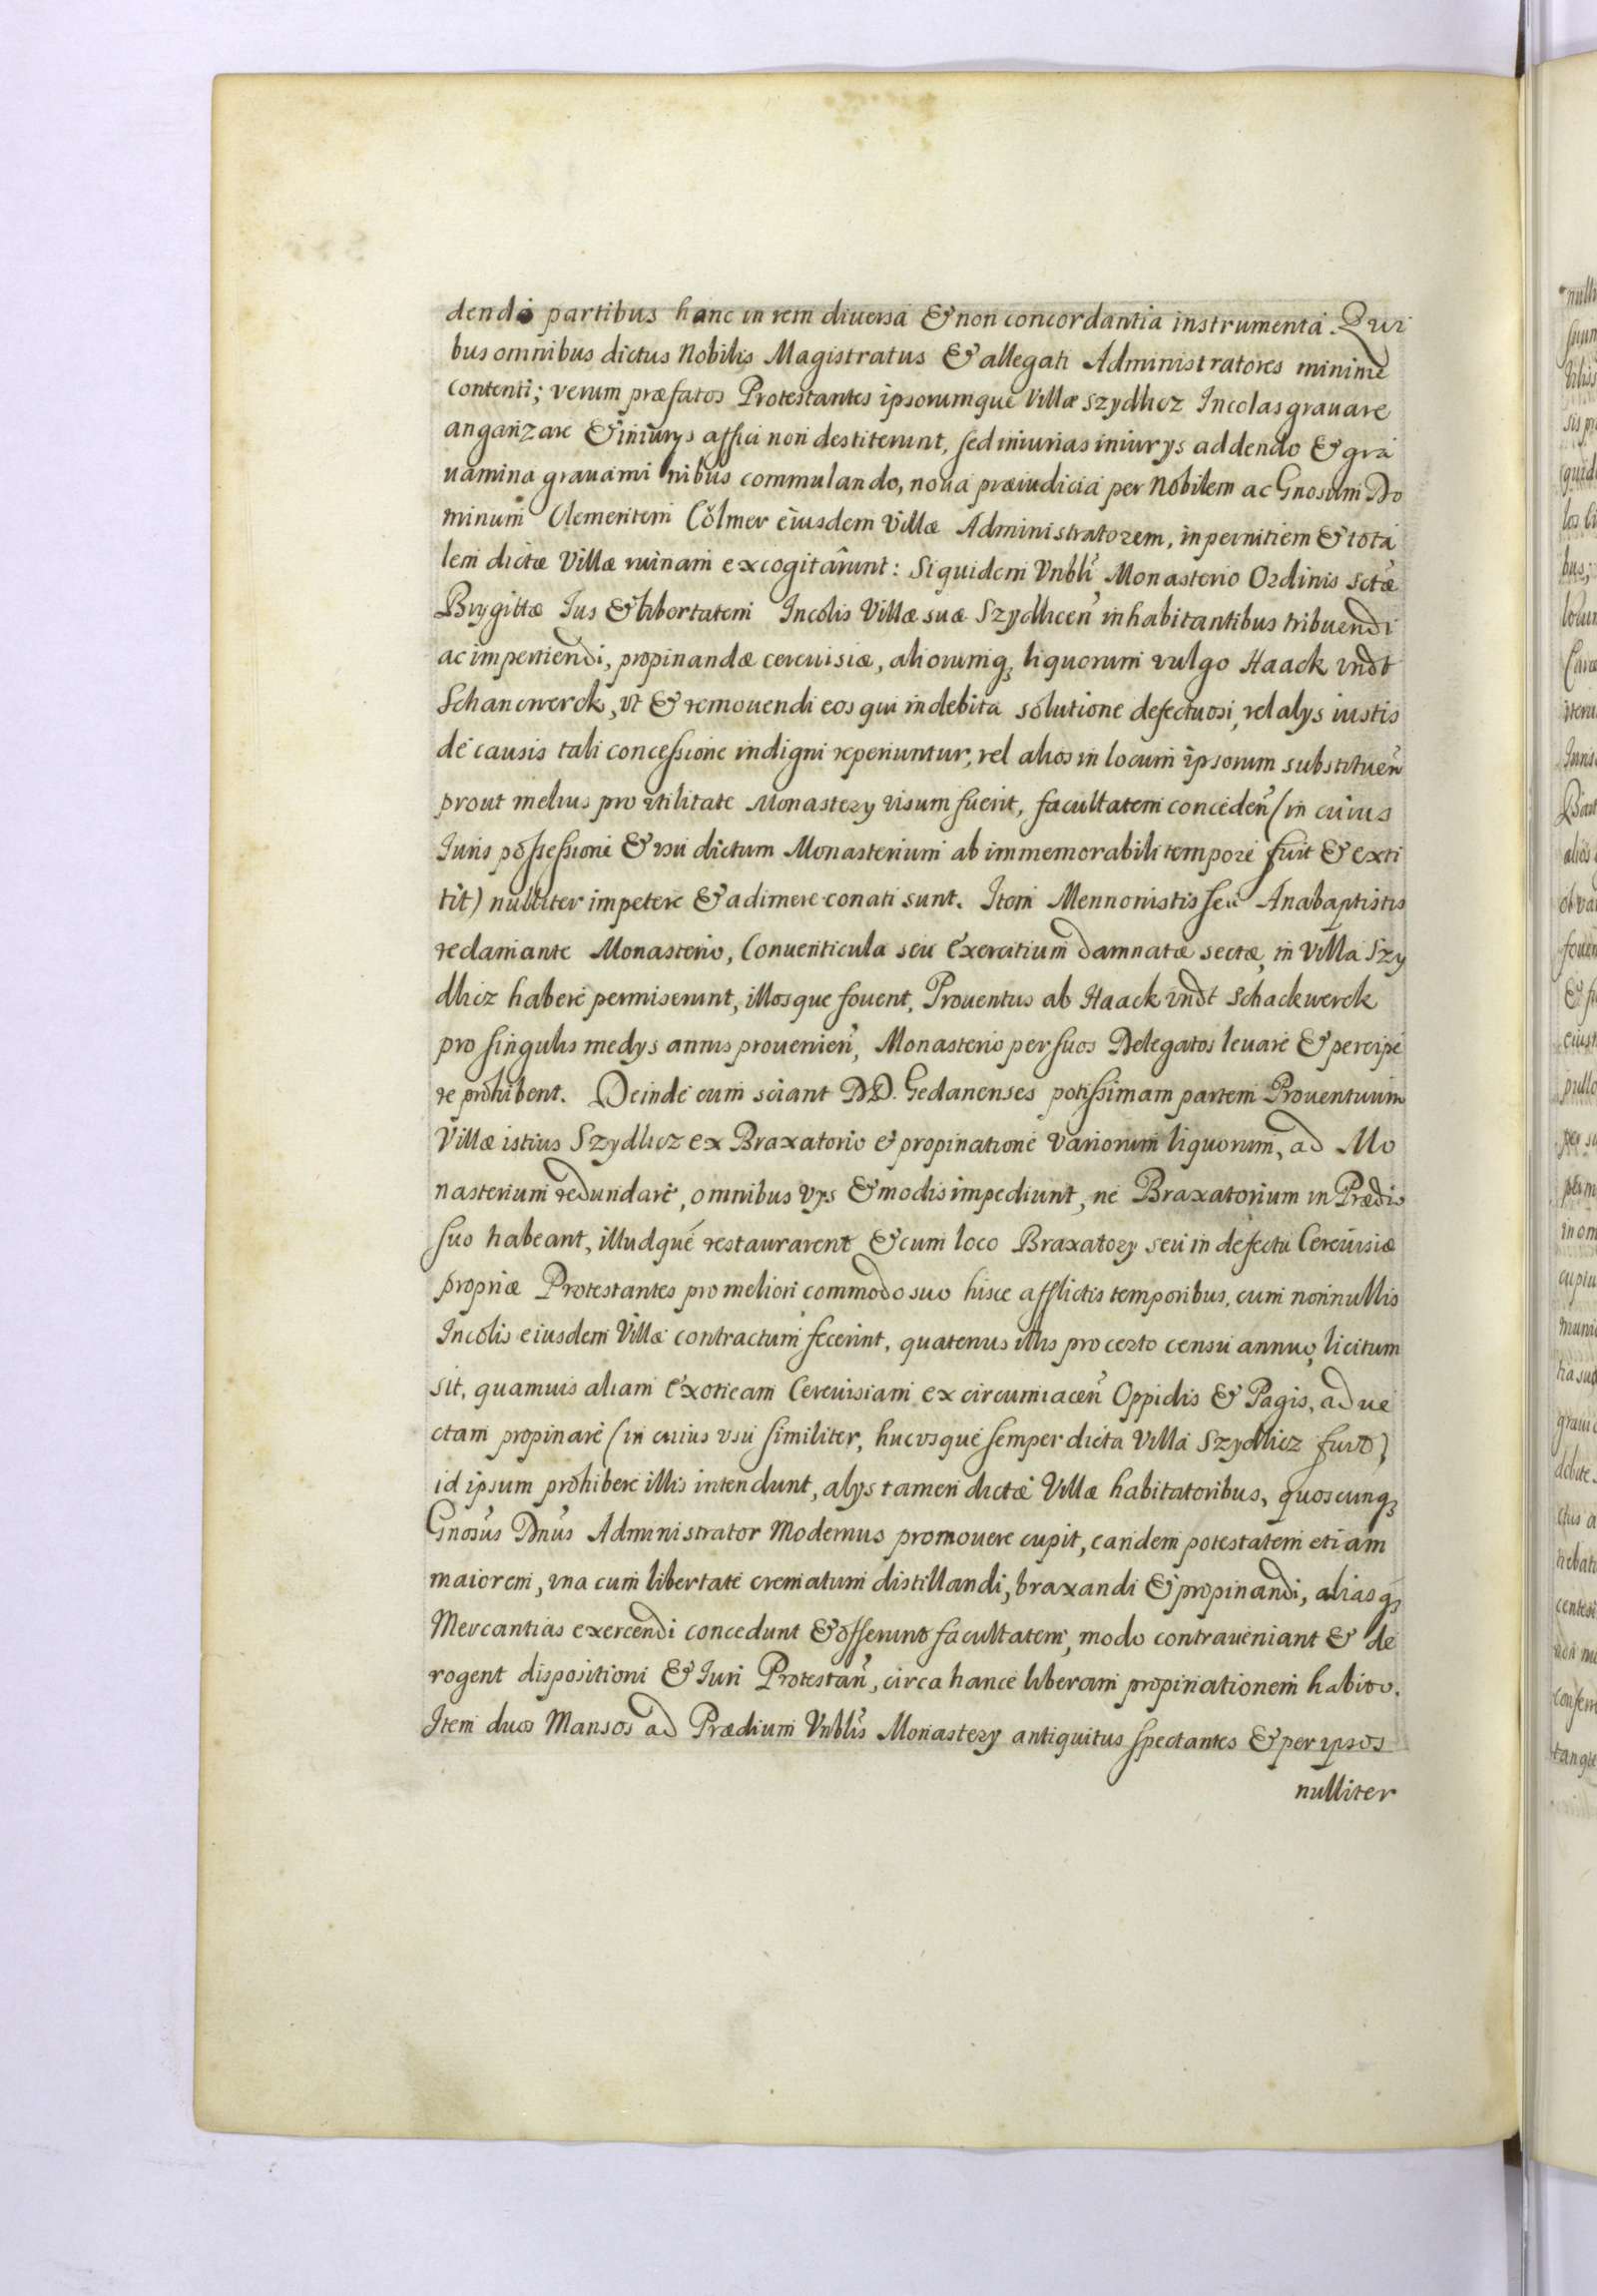 dendo partibus hanc in rem diuersa & non concordantia instrumenta. Qui
bus omnibus dictus Nobilis Magistratus & allegati Administratores minime
contenti; verum præfatos Protestantes ipsorumque Villæ Szydlicz Incolas grauare
anganzare & iniurys affici non destiterunt, sed iniurias iniurys addendo & gra
uamina grauami nibus commulando, noua præiudicia per Nobilem ac Gnosum Do
minum Clementem Cölmer eiusdem Villæ Administratorem, in pernitiem & tota
lem dictæ Villæ ruinam excogitârunt: Siquidem Vnbli Monasterio Ordinis Sctæ
Brygittæ Ius & libertatem Incolis Villæ suæ Szydlicen inhabitantibus tribuendi
ac impertiendi, propinandæ cereuisiæ, aliorumq liquorum vulgo Haack vndt
Schancwerck, vt & remouendi eos qui in debita solutione defectuosi, vel alys iustis
de causis tali concessione indigni reperiuntur, vel alios in locum ipsorum substituen
prout melius pro vtilitate Monastery visum fuerit, facultatem conceden (in cuius
Iuris possessione & vsu dictum Monasterium ab immemorabili tempore fuit & exti
tit) nulliter impetere & adimere conati sunt. Item Mennonistis seu Anabaptistis
reclamante Monasterio, Conuenticula seu Exercitium damnatæ sectæ, in Villa Szy
dlicz habere permiserunt, illosque fouent, Prouentus ab Haack vndt Schackwerck
pro singulis medys annis prouenien, Monasterio per suos Delegatos leuare & percipe
re prohibent. Deinde cum sciant DD. Gedanenses potissimam partem Prouentuum
Villæ istius Szydlicz ex Braxatorio & propinatione variorum liquorum, ad Mo
nasterium redundare, omnibus vys & modis impediunt, ne Braxatorium in Prædio
suo habeant, illudque restaurarent & cum loco Braxatory seu in defectu Cereuisiæ
propriæ Protestantes pro meliori commodo suo hisce afflictis temporibus, cum nonnullis
Incolis eiusdem Villæ contractum fecerint, quatenus illis pro certo censu annuo, licitum
sit, quamuis aliam Exoticam Cereuisiam ex circumiacen Oppidis & Pagis, adue
ctam propinare (in cuius vsu similiter, hucvsque semper dicta Villa Szydlicz fuit)
id ipsum prohibere illis intendunt, alys tamen dictæ Villæ habitatoribus, quoscunq
Gnosus Dnus Administrator Modernus promouere cupit, eandem potestatem etiam
maiorem, vna cum libertate crematum distillandi, braxandi & propinandi, aliasq
Mercantias exercendi concedunt & offerunt facultatem, modo contraueniant & de
rogent dispositioni & Iuri Protestan, circa hance liberam propinationem habito.
Item duos Mansos ad Prædium Vnblis Monastery antiquitus spectantes & per ipsos
nulliter